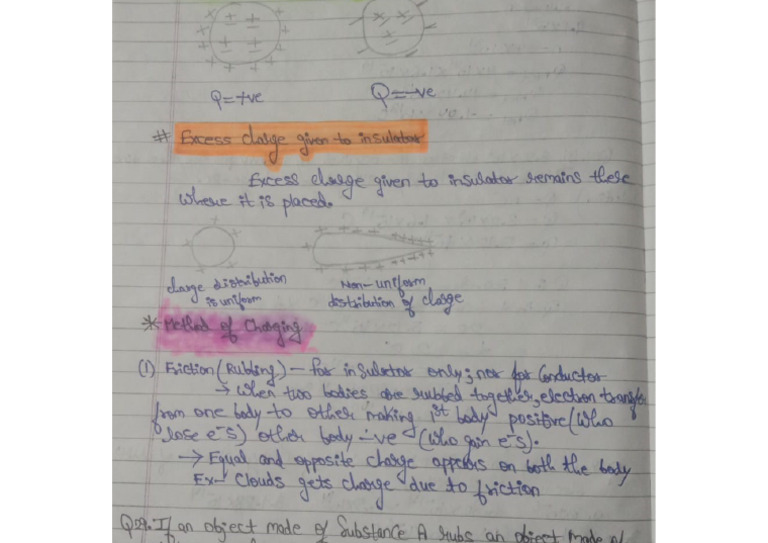 Q=+ve Q=-ve
# Excess charge given to insulator
Excess charge given to insulator remains there
where it is placed.
charge distribution Non-uniform
is uniform distribution of charge
* Method of Charging
(1) Friction (Rubbing) - for insulator only; not for conductor
→ When two bodies are rubbed together, electron transfer
from one body to other making 1st body positive (who
lose e-s) other body -ve (who gain e-s).
→ Equal and opposite charge appears on both the body
Ex- Clouds gets charge due to friction
If an object made of Substance A rubs an object made of